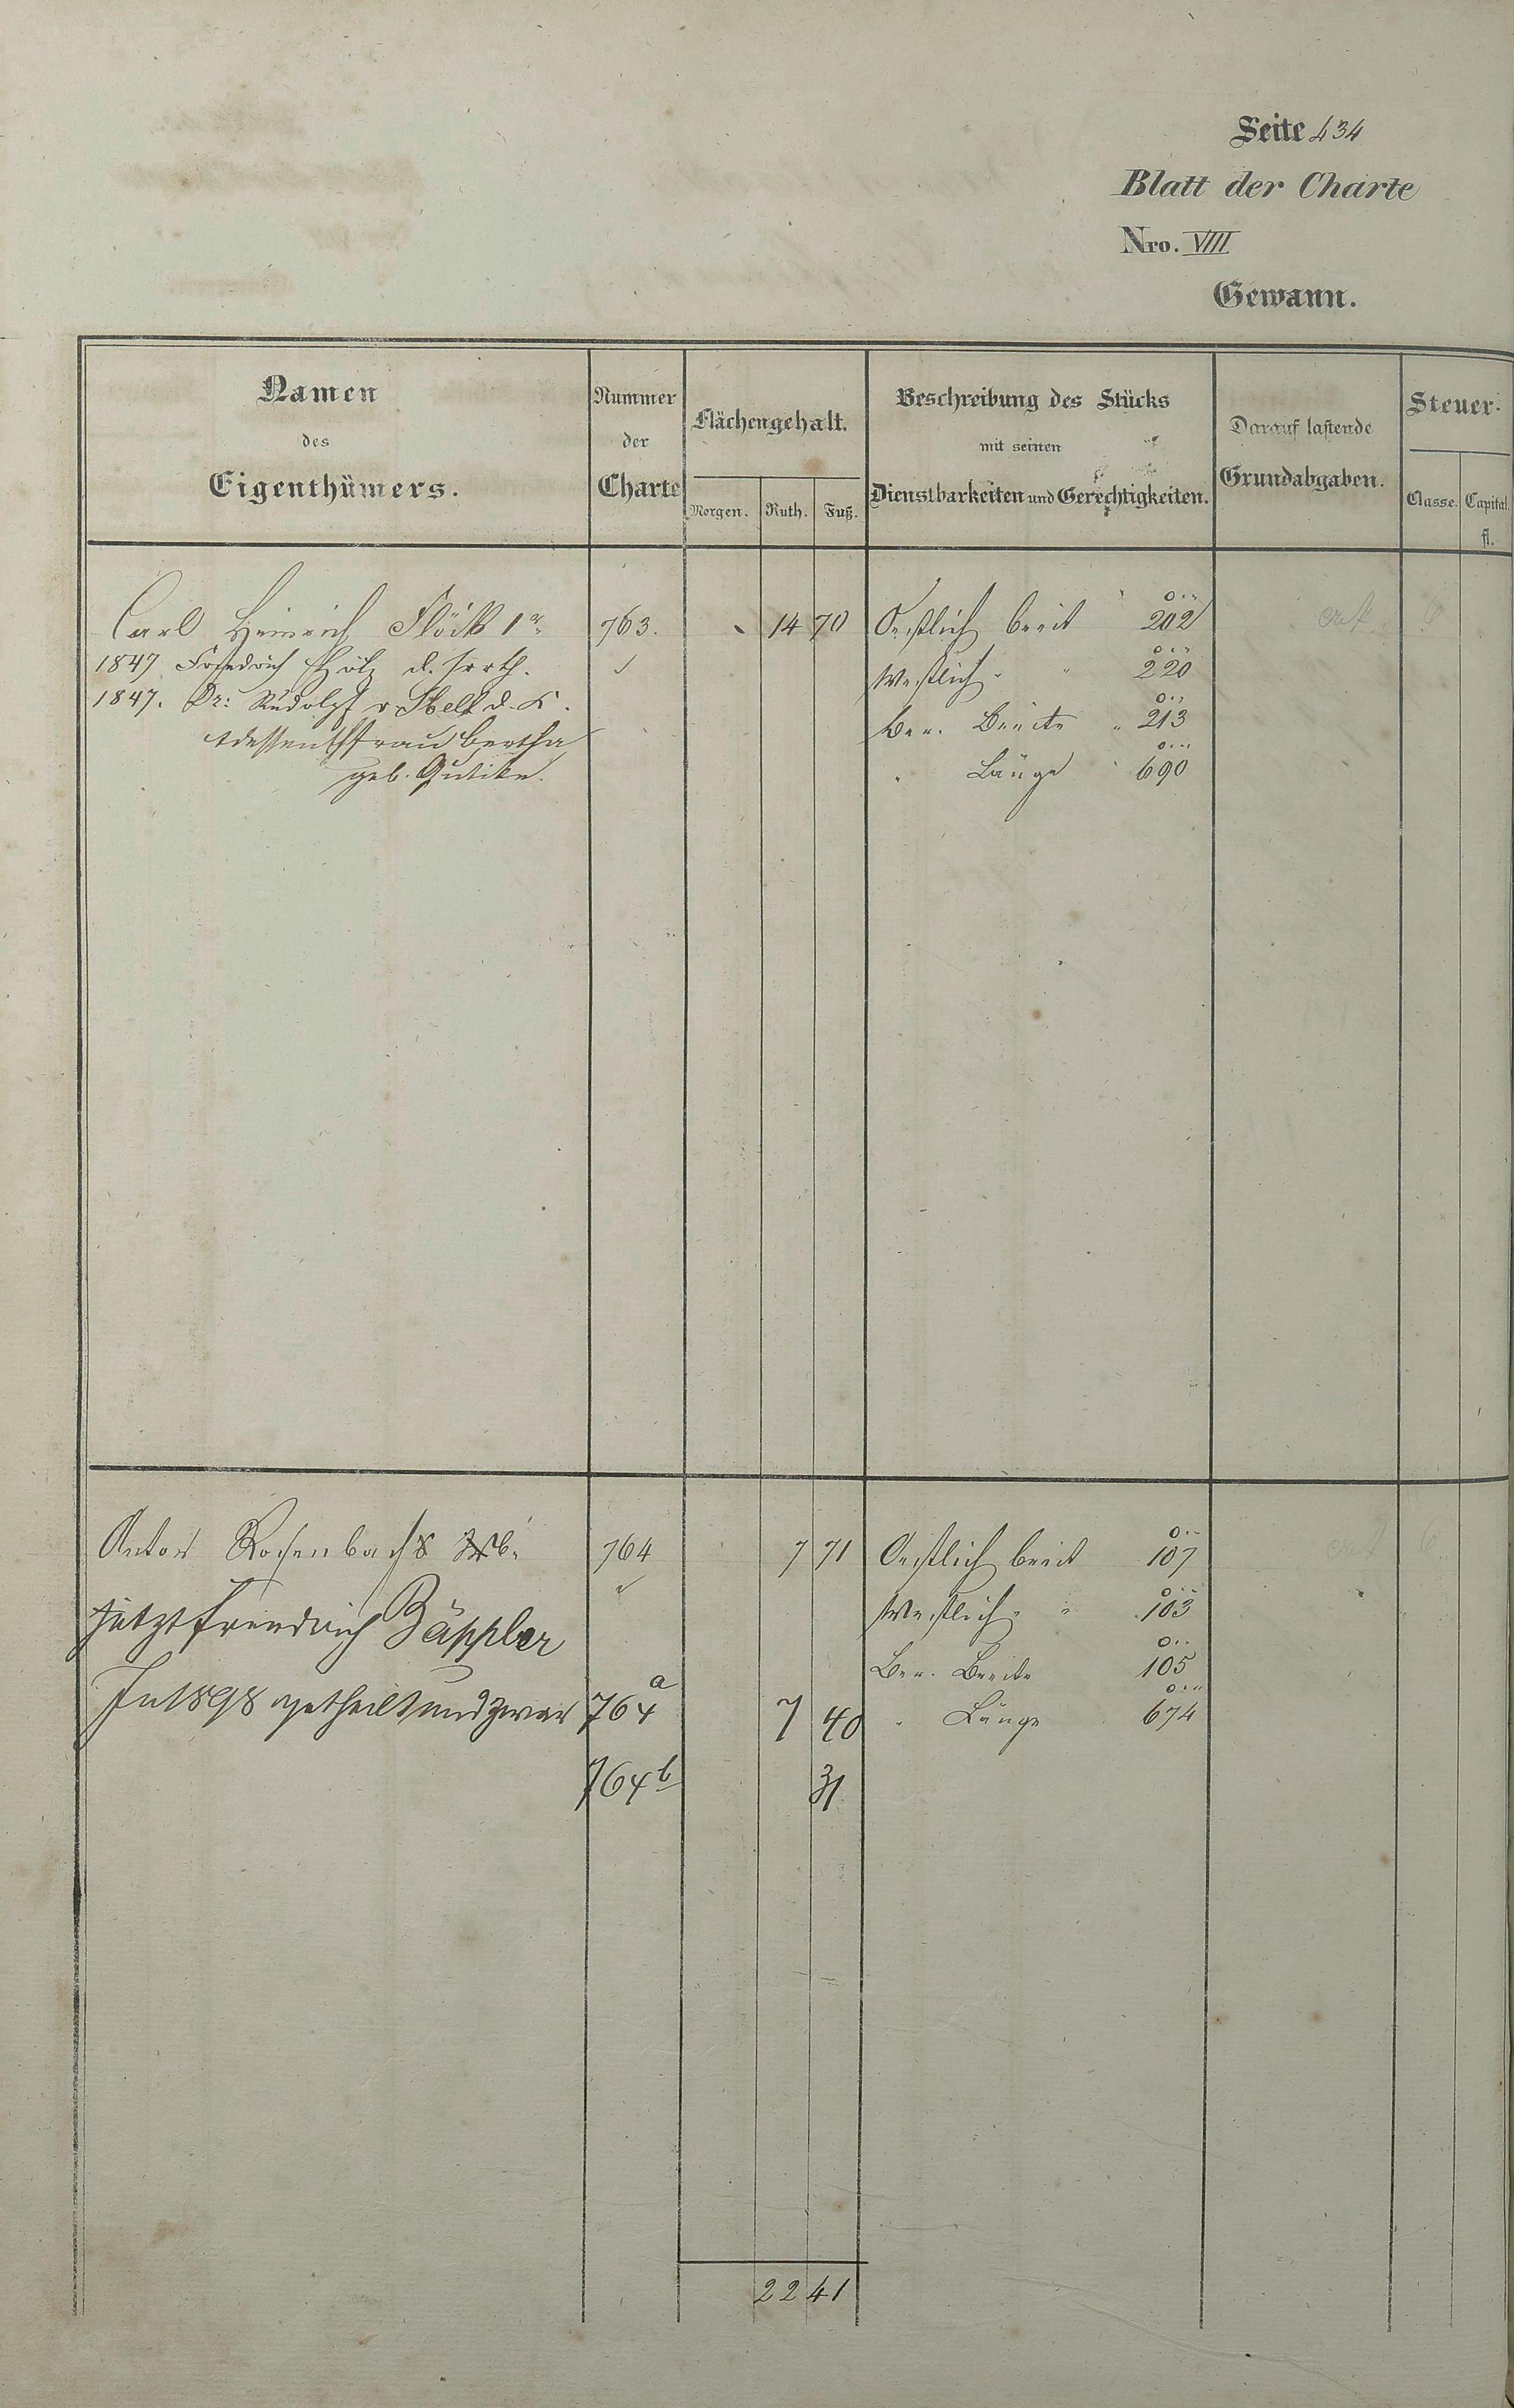 Seite 434
Blatt der Charte
Nro. VIII
Gewann.
Namen des Eigenthümers.
Nummer der Charte
Flächengehalt.
Morgen. Ruth. Fuß.
Beschreibung des Stücks mit seinen Dienstbarkeiten und Gerechtigkeiten.
Darauf lastende Grundabgaben.
Steuer-
Classe. Capital. fl.
Carl Heinrich Flöck 1r 763. 14 70 Oestlich breit 202
1847 Friedrich Hölz d. Westlich " " 220
1847. Dr: Rudolph v. d. K. Ber. Breite " 213
Ehfrau Bertha " Länge " 690
geb.
Anton Rosenbach 764 7 71 Oestlich breit 107
Westlich " " 103
jetzt Friedrich Bäppler
Ber. Breite 105
In 1898 getheilt und zwar 764 a 7 40 " Länge 674
764 b 31
22 41